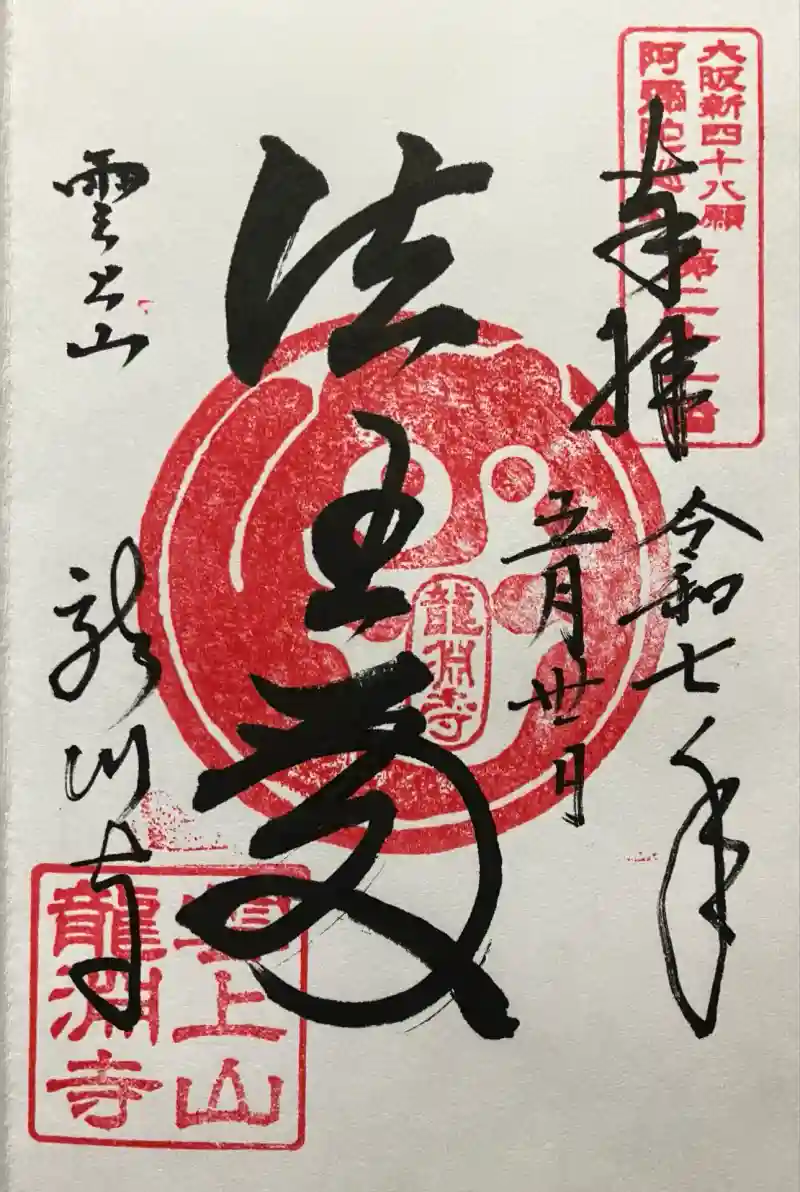 大阪新四十八願
阿彌陀巡
奉拝
令和七年
五月丗日
法王
龍淵寺
雲上山
龍淵寺
雲上山
龍淵寺